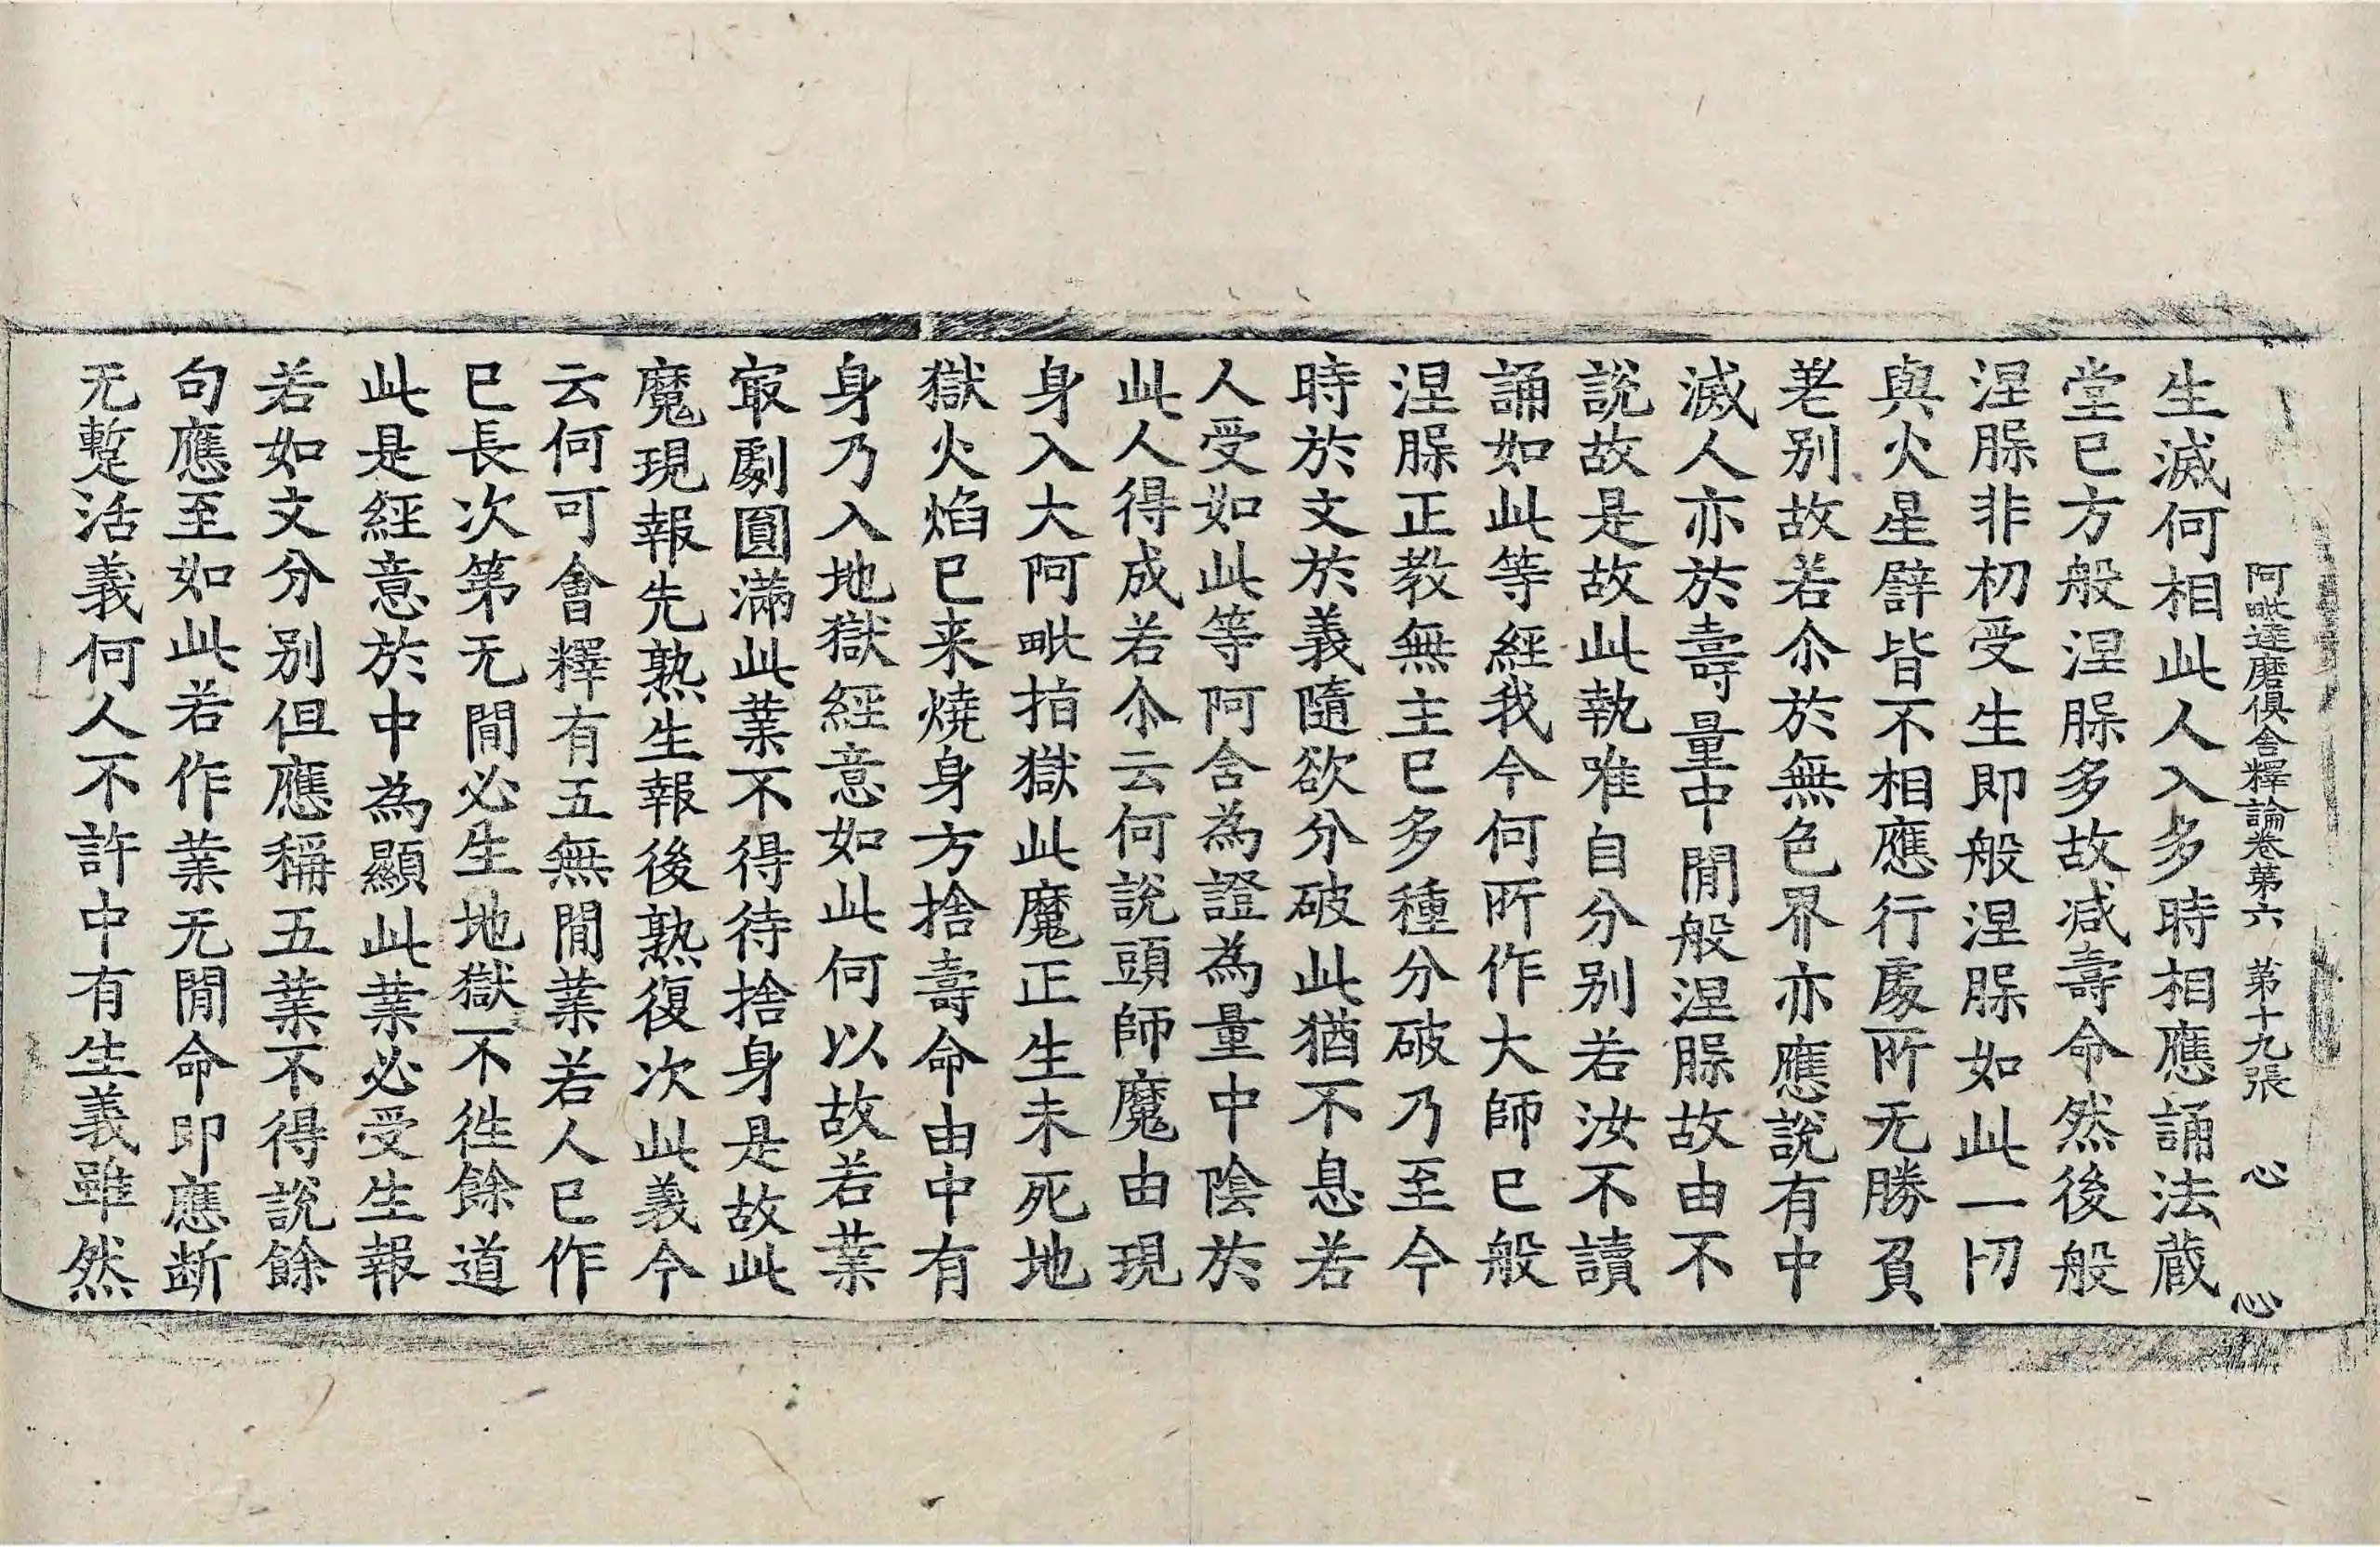 阿毗達磨俱舍釋論卷第六 第十九張 心
生滅何相此人入多時相應誦法蔵
堂巳方般涅脲多故减壽命然後般
涅脲非初受生即般涅脲如此一切
與火星譬皆不相應行處所无勝負
差别故若尒於無色界亦應說有中
滅人亦於壽量中閒般涅脲故由不
說故是故此執唯自分别若汝不讀
誦如此等經我今何所作大師巳般
涅脲正教無主巳多種分破乃至今
時於文於義隨欲分破此猶不息若
人受如此等阿含為證為量中陰於
此人得成若尒云何說頭師魔由現
身入大阿毗指獄此魔正生未死地
獄火焰巳来燒身方捨壽命由中有
身乃入地獄經意如此何以故若業
㝡劇圓滿此業不得待捨身是故此
魔現報先熟生報後熟復次此義今
云何可會釋有五無閒業若人巳作
巳長次第无閒必生地獄不徃餘道
此是經意於中為顯此業必受生報
若如文分别但應稱五業不得說餘
句應至如此若作業无閒命即應断
无蹔活義何人不許中有生義雖然